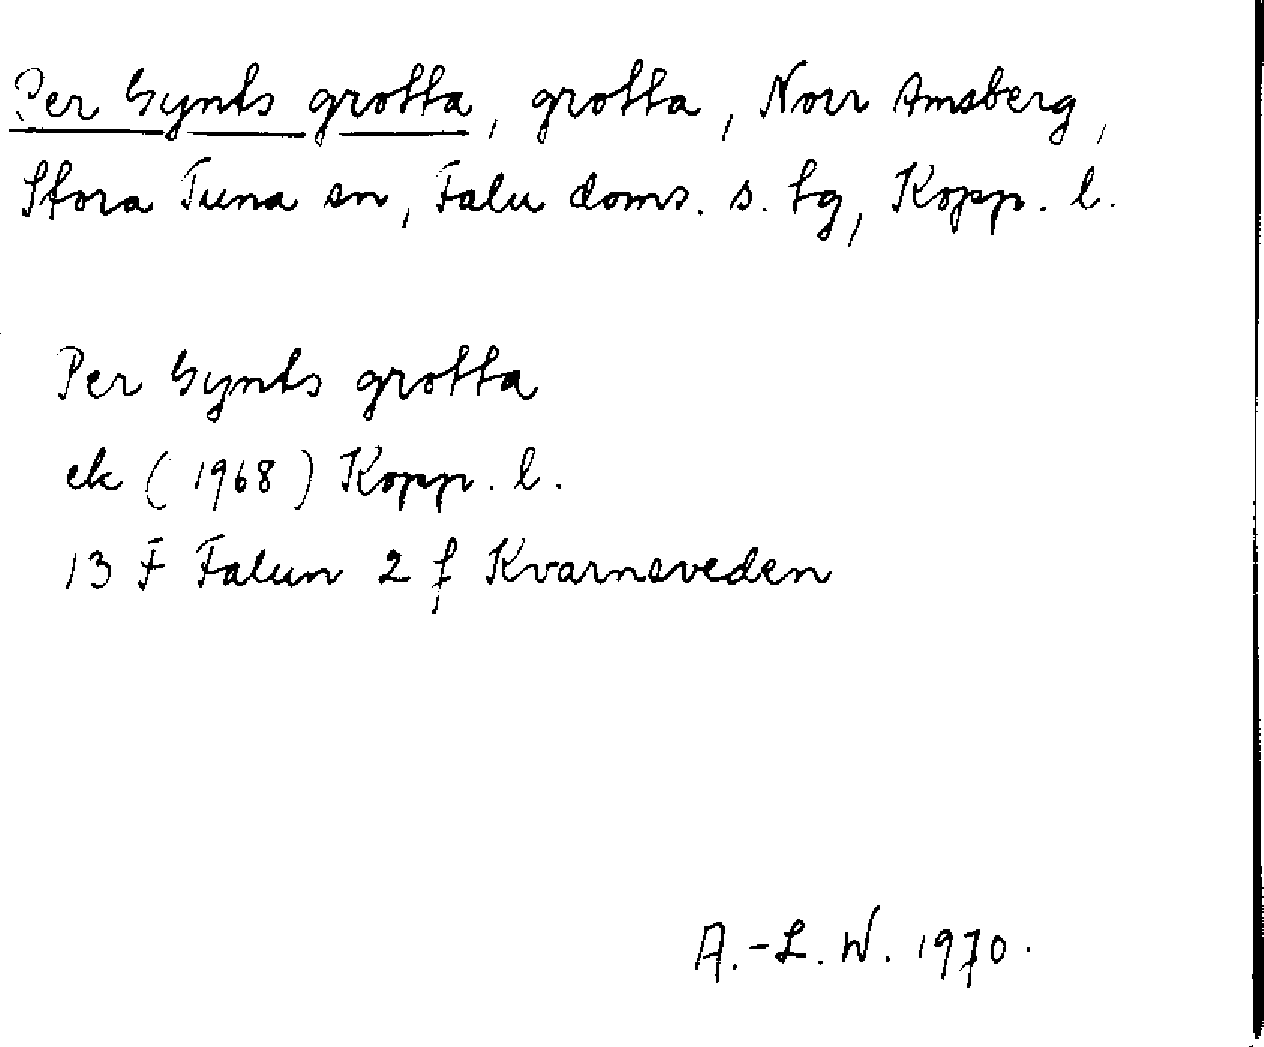 Per Gynts grotta, grotta, Norr Amsberg,
Stora Tuna sn, Falu doms. s. tg, Kopp. l.
Per Gynts grotta
ek (1968) Kopp. l.
13 F Falun 2 f Kvarnsveden
A.-L. W. 1970.